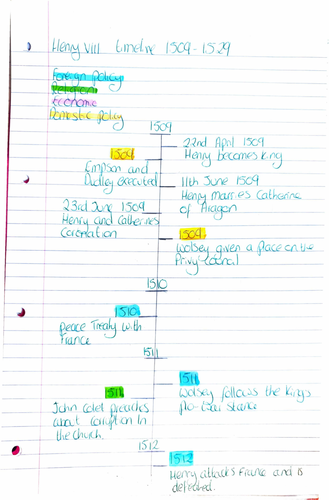 Henry VIII timeline 1509-1529
Foreign policy
Religion
Economic
Domestic policy
1509
22nd April 1509
Henry becomes King
1509
Empson and
Dudley executed
11th June 1509
Henry marries Catherine
of Aragon
23rd June 1509
Henry and Catherines
Coronation
1509
Wolsey given a place on the
Privy Council
1510
1510
Peace Treaty with
France
1511
1511
Wolsey follows the King's
pro-war stance
1511
John Colet preaches
about corruption in
the church.
1512
1512
Henry attacks France and is
defeated.